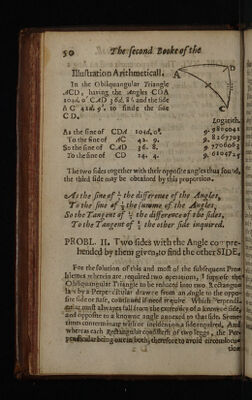 50 The second Booke of the
Illustration Arithmeticall.
A
D
C
In the Obliquangular Triangle
ACD, having the Angles CDA
104d. 0' CAD 36d. 8' and the side
AC 42d. 9'. to finde the side
CD.
Logarith.
As the sine of CDA 104d. 0'. 9.
To the sine of AC 42. 9. 9.
So the sine of CAD 36. 8. 9.
To the sine of CD 24. 4. 9.
The two sides together with their opposite angles thus found,
the third side may be obtained by this proportion.
As the sine of ½ the difference of the Angles,
To the sine of ½ the summe of the Angles,
So the Tangent of ½ the difference of the sides,
To the Tangent of ½ the other side inquired.
PROBL. II. Two sides with the Angle comprehended
by them given, to find the other SIDE.
For the solution of this and most of the subsequent Problemes
wherein are required two operations, I suppose the
Obliquangular Triangle to be reduced into two Rectangular
by a Perpendicular drawne from an Angle to the opposite
side or base, continued if need require. Which Perpendicular
must alwayes fall from the extremity of a knowne side,
and opposite to a knowne angle annexed to that side.
whereas each Rectangular consisteth of two leggs, the Perpendicular
being one in both, therefore to avoid circumlocution